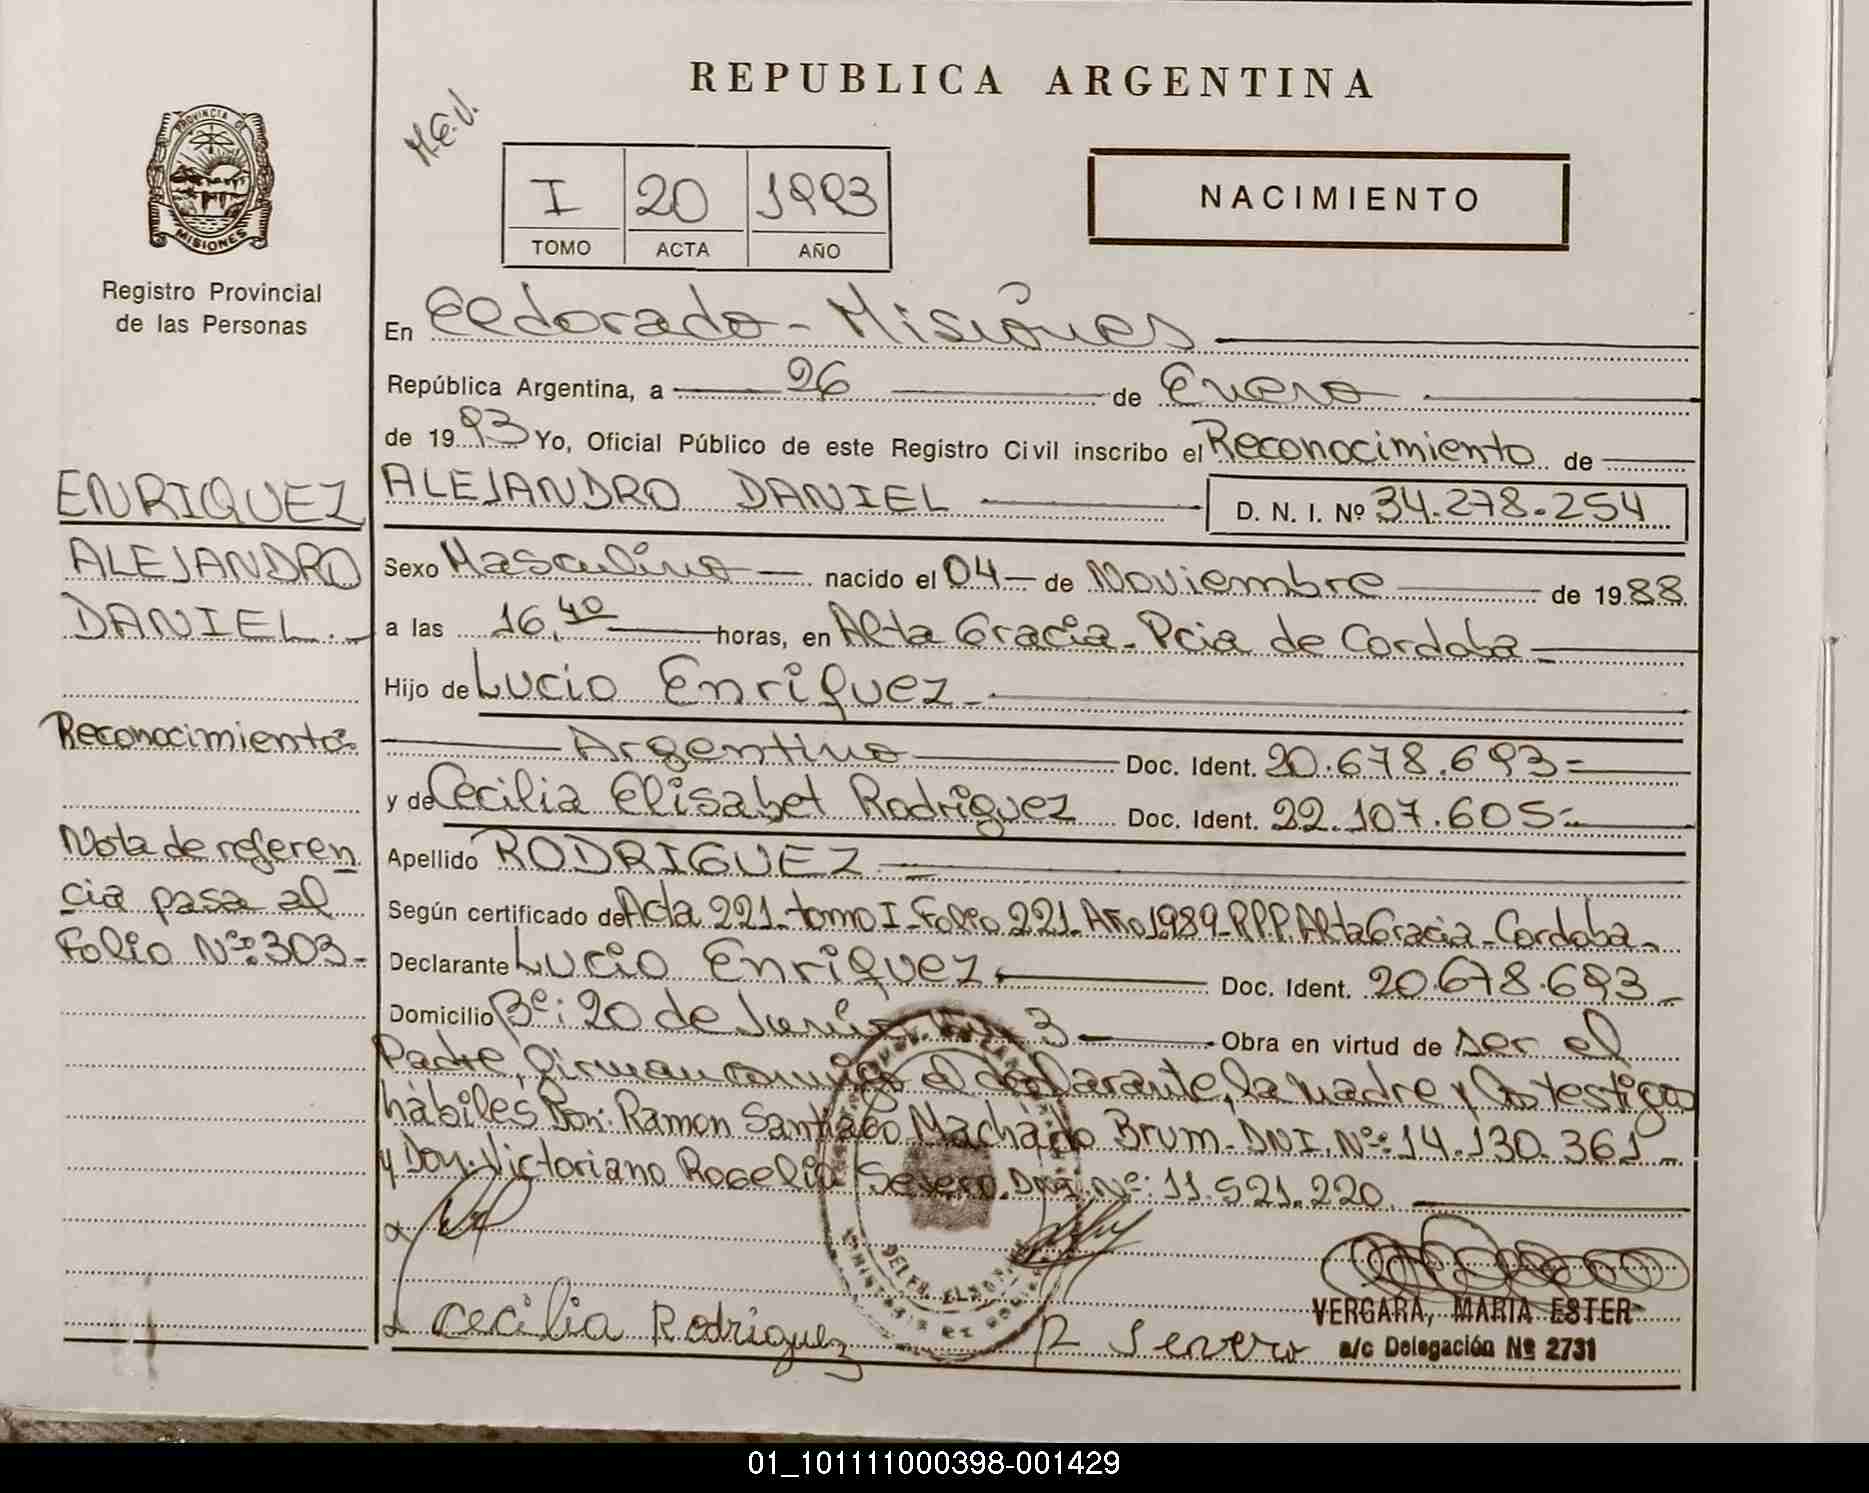 REPUBLICA ARGENTINA
M.E.V.
PROVINCIA DE
MISIONES
Registro Provincial
de las Personas
I 20 1993
TOMO ACTA AÑO
NACIMIENTO
En Eldorado - Misiones
República Argentina, a 26 de Enero
de 1993 Yo, Oficial Público de este Registro Civil inscribo el Reconocimiento de
ALEJANDRO DANIEL D. N. I. Nº 34.278.254
Sexo Masculino nacido el 04 de Noviembre de 1988
a las 16,40 horas, en Alta Gracia - Pcia de Cordoba
Hijo de Lucio Enriquez
Argentino Doc. Ident. 20.678.693
y de Cecilia Elisabet Rodriguez Doc. Ident. 22.107.605
Apellido RODRIGUEZ
Según certificado de Acta 221 - tomo I - Folio 221 - Año 1989 - R.P.P. Alta Gracia - Cordoba
Declarante Lucio Enriquez Doc. Ident. 20.678.693
Domicilio Bº: 20 de Junio 3 Obra en virtud de ser el
Padre, firman conmigo el declarante, la madre y los testigos
hábiles Don: Ramon Santiago Machado Brum - DNI. Nº: 14.130.361
y Don: Victoriano Rogelio Severo. DNI. Nº: 11.521.220.
Cecilia Rodriguez
R Severo
VERGARA, MARIA ESTER
a/c Delegación Nº 2731
ENRIQUEZ
ALEJANDRO
DANIEL.
Reconocimiento
Nota de referen
cia pasa al
Folio Nº: 303
01_101111000398-001429